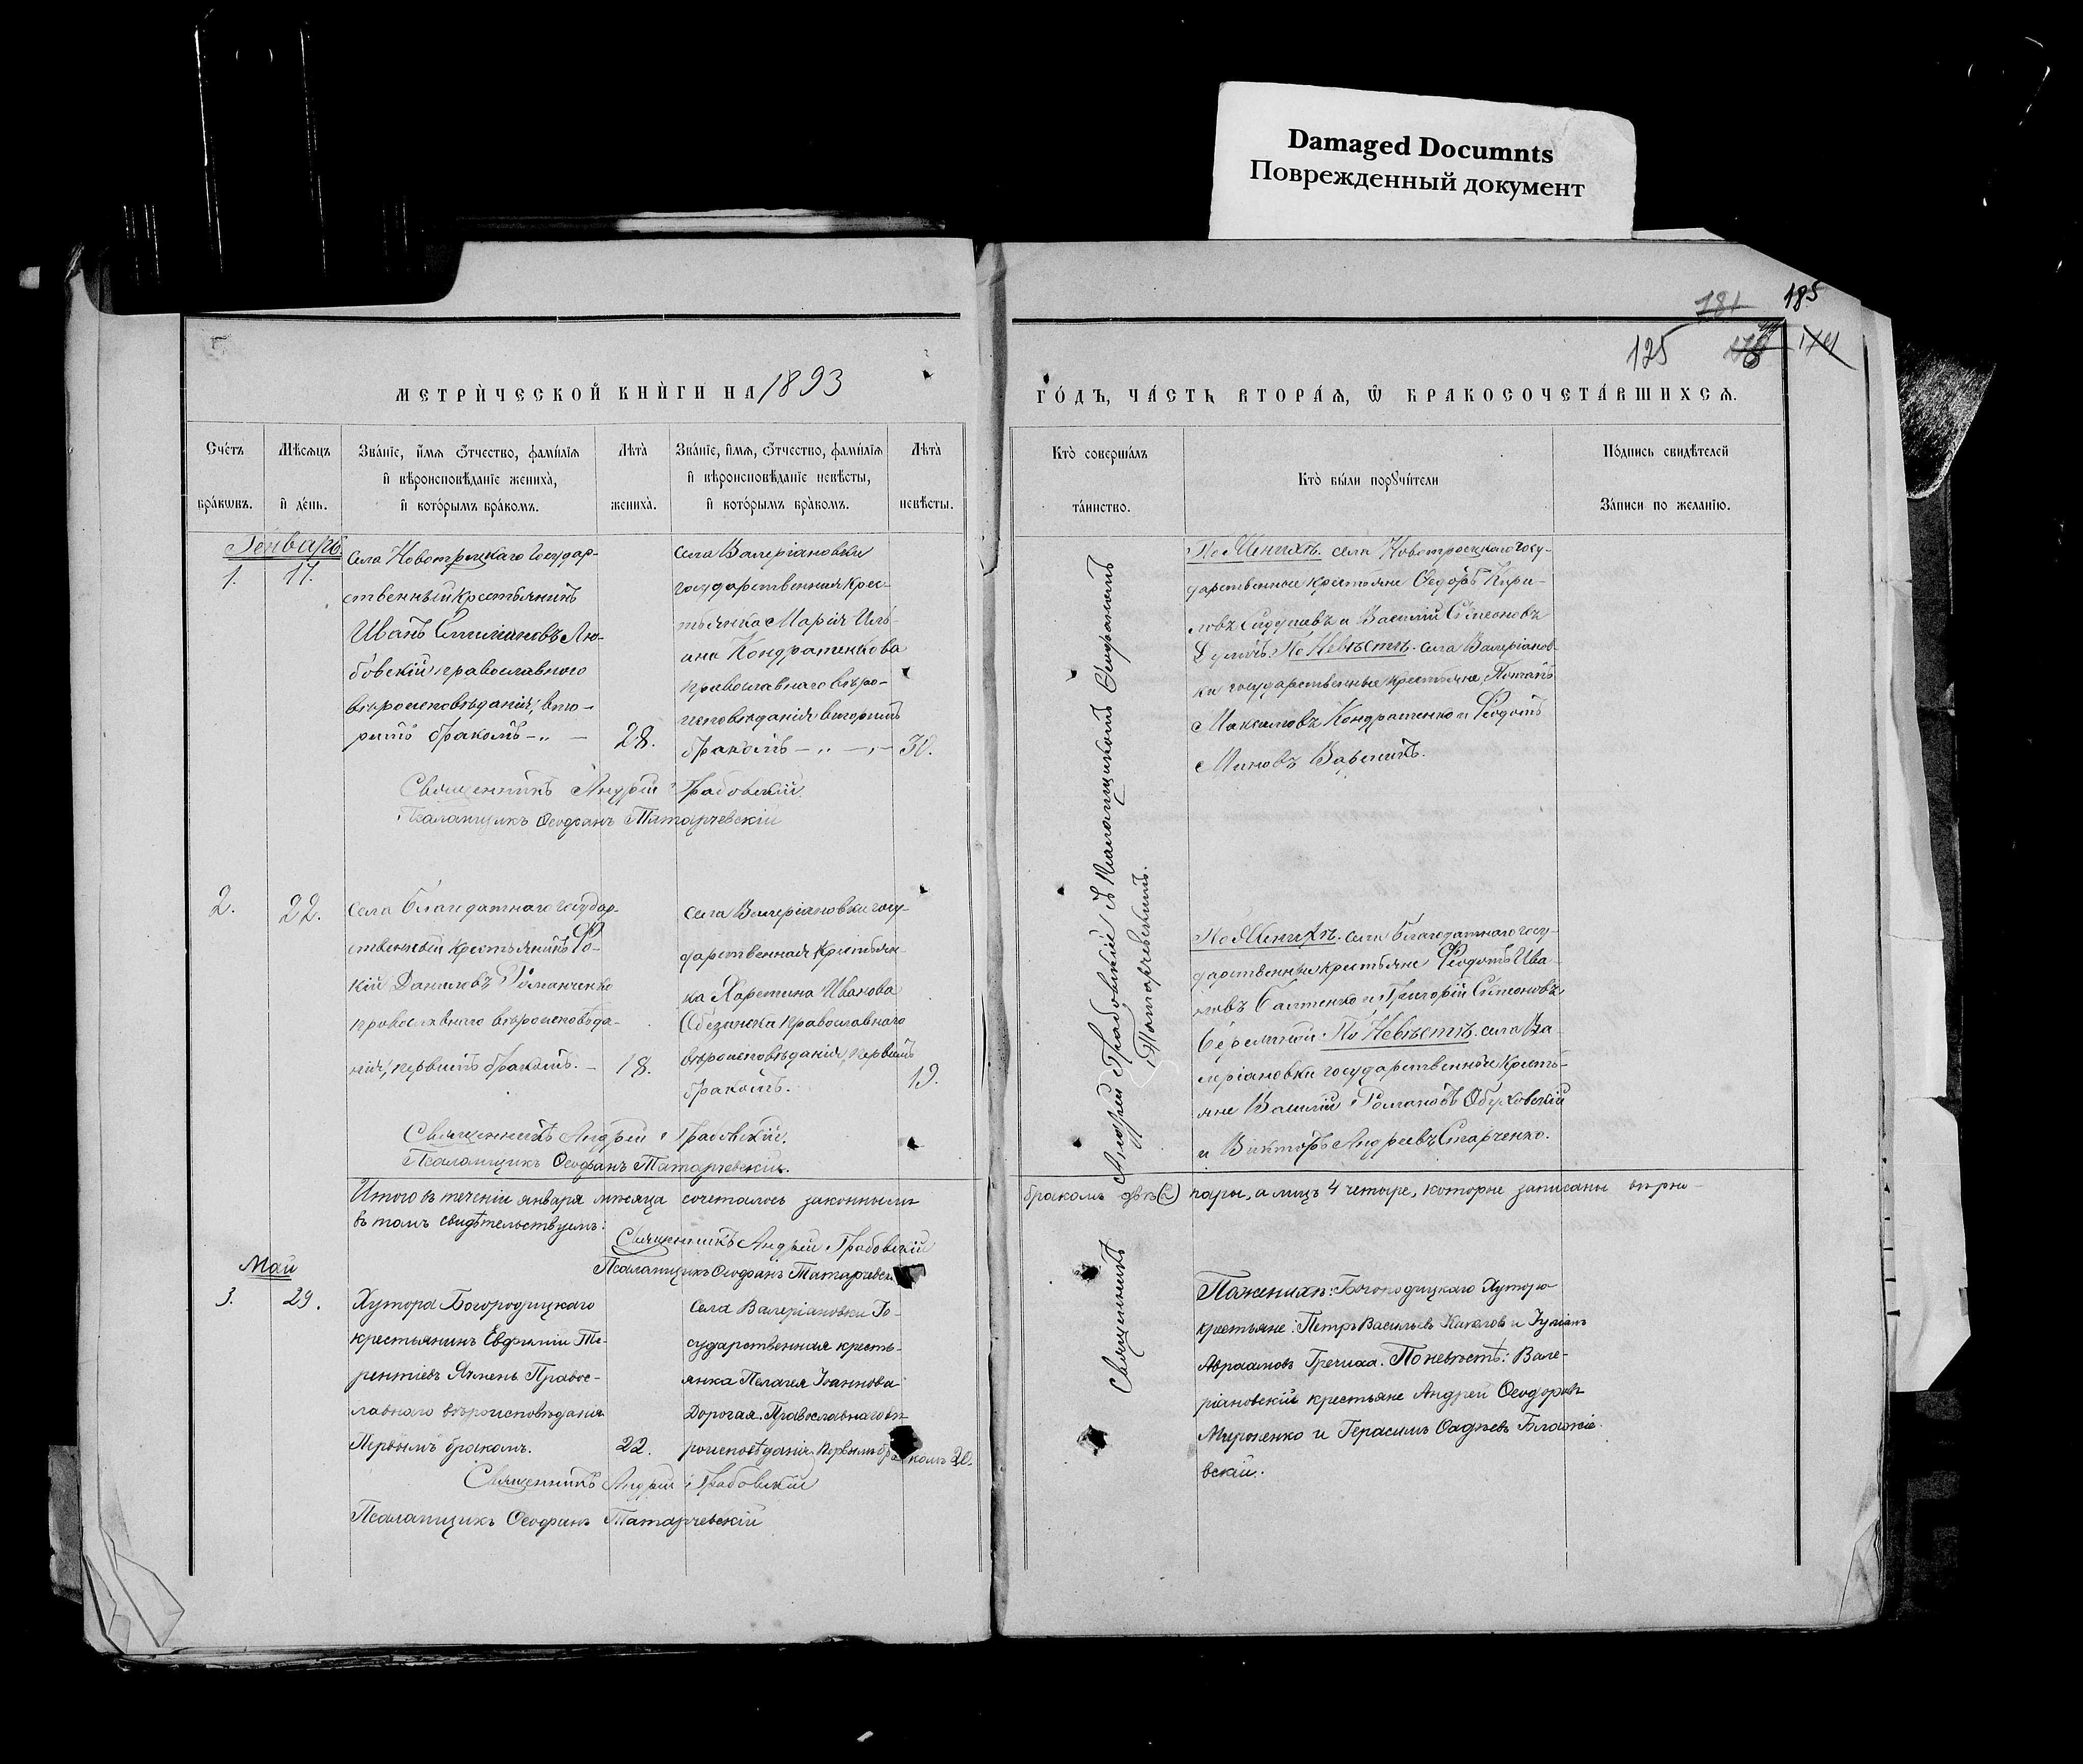 Damaged Documnts
Поврежденный документ
181 185
125
МЕТРИЧЕСКОЙ КНИГИ НА 1893
ГОДЪ, ЧАСТЬ ВТОРАЯ, Ѡ БРАКОСОЧЕТАВШИХСЯ.
Счетъ браковъ.
Мѣсяцъ и день.
Званіе, имя, отчество, фамилія и вѣроисповѣданіе жениха, и которымъ бракомъ.
Лѣта жениха.
Званіе, имя, отчество, фамилія и вѣроисповѣданіе невѣсты, и которымъ бракомъ.
Лѣта невѣсты.
Кто совершалъ таинство.
Кто были поручители
Подпись свидѣтелей записи по желанію.
Генварь
1. 17.
Села Новотроицкаго государ-
ственный крестьянинъ
Иванъ Лю-
бовскій православного
вѣроисповѣданія, вто-
рымъ бракомъ
28.
села Валеріановки
государственная крес-
тьянка Марія Иль-
ина Кондратенкова
православнаго вѣро-
исповѣданія вторымъ
бракомъ
30.
Священникъ Андрей Грабовскій
Псаломщикъ Ѳеофанъ Татарчевскій
По Женихѣ. села Новотроецкаго госу-
дарственные крестьяне Ѳедоръ Кири-
ловъ и Василій Симеоновъ
По Невѣстѣ. села Валеріанов-
ки государственные крестьяне, Потапъ
Максимовъ Кондратенко и Феодотъ
Миновъ
2. 22.
Села Благодатнаго государ-
ственный крестьянинъ Фо-
кій Даниловъ Романченко
православнаго вѣроисповѣда-
нія, первымъ бракомъ.
18.
села Валеріановки госу-
дарственная крестьян-
ка Харитина Иванова
православнаго
вѣроисповѣданія, первымъ
бракомъ.
19.
Священникъ Андрей Грабовскій.
Псаломщикъ Ѳеофанъ Татарчевскій.
По Женихѣ. села Благодатнаго госу-
дарственные крестьяне Феодотъ Ива-
новъ и Григорій Симеоновъ
По Невѣстѣ. села Ва-
леріановки государственные кресть-
яне Василій Романовъ Обуховскій
и Викторъ Андреевъ Старченко.
Священникъ Андрей Грабовскій съ Псаломщикомъ Ѳеофаномъ
Татарчевскимъ.
Итого въ теченіи января мѣсяца сочеталось законнымъ
бракомъ двѣ (2) пары, а лицъ 4 четыре, которые записаны вѣрно
въ томъ свидѣтельствуемъ:
Священникъ Андрей Грабовскій
Псаломщикъ Ѳеофанъ Татарчевскій
Май
3. 29.
Хутора Богородицкаго
крестьянинъ Евфимій Те-
рентіевъ Ячмень Правос-
лавнаго вѣроисповѣданія
Первымъ бракомъ.
22.
Села Валеріановки Го-
сударственная кресть-
янка Пелагея Іоаннова
Дорогая. Православнаго вѣ-
роисповѣданія. Первымъ бракомъ 20.
Священникъ Андрей Грабовскій
Псаломщикъ Ѳеофанъ Татарчевскій
По женихѣ: Богородицкаго Хутора
крестьяне: Петръ Васильевъ и Іуліанъ
Авраамовъ Гречиха. По невѣстѣ: Вале-
ріановскіе крестьяне Андрей Ѳеодоровъ
Мироненко и Герасимъ Ѳаддѣевъ Блажіе-
вскій.